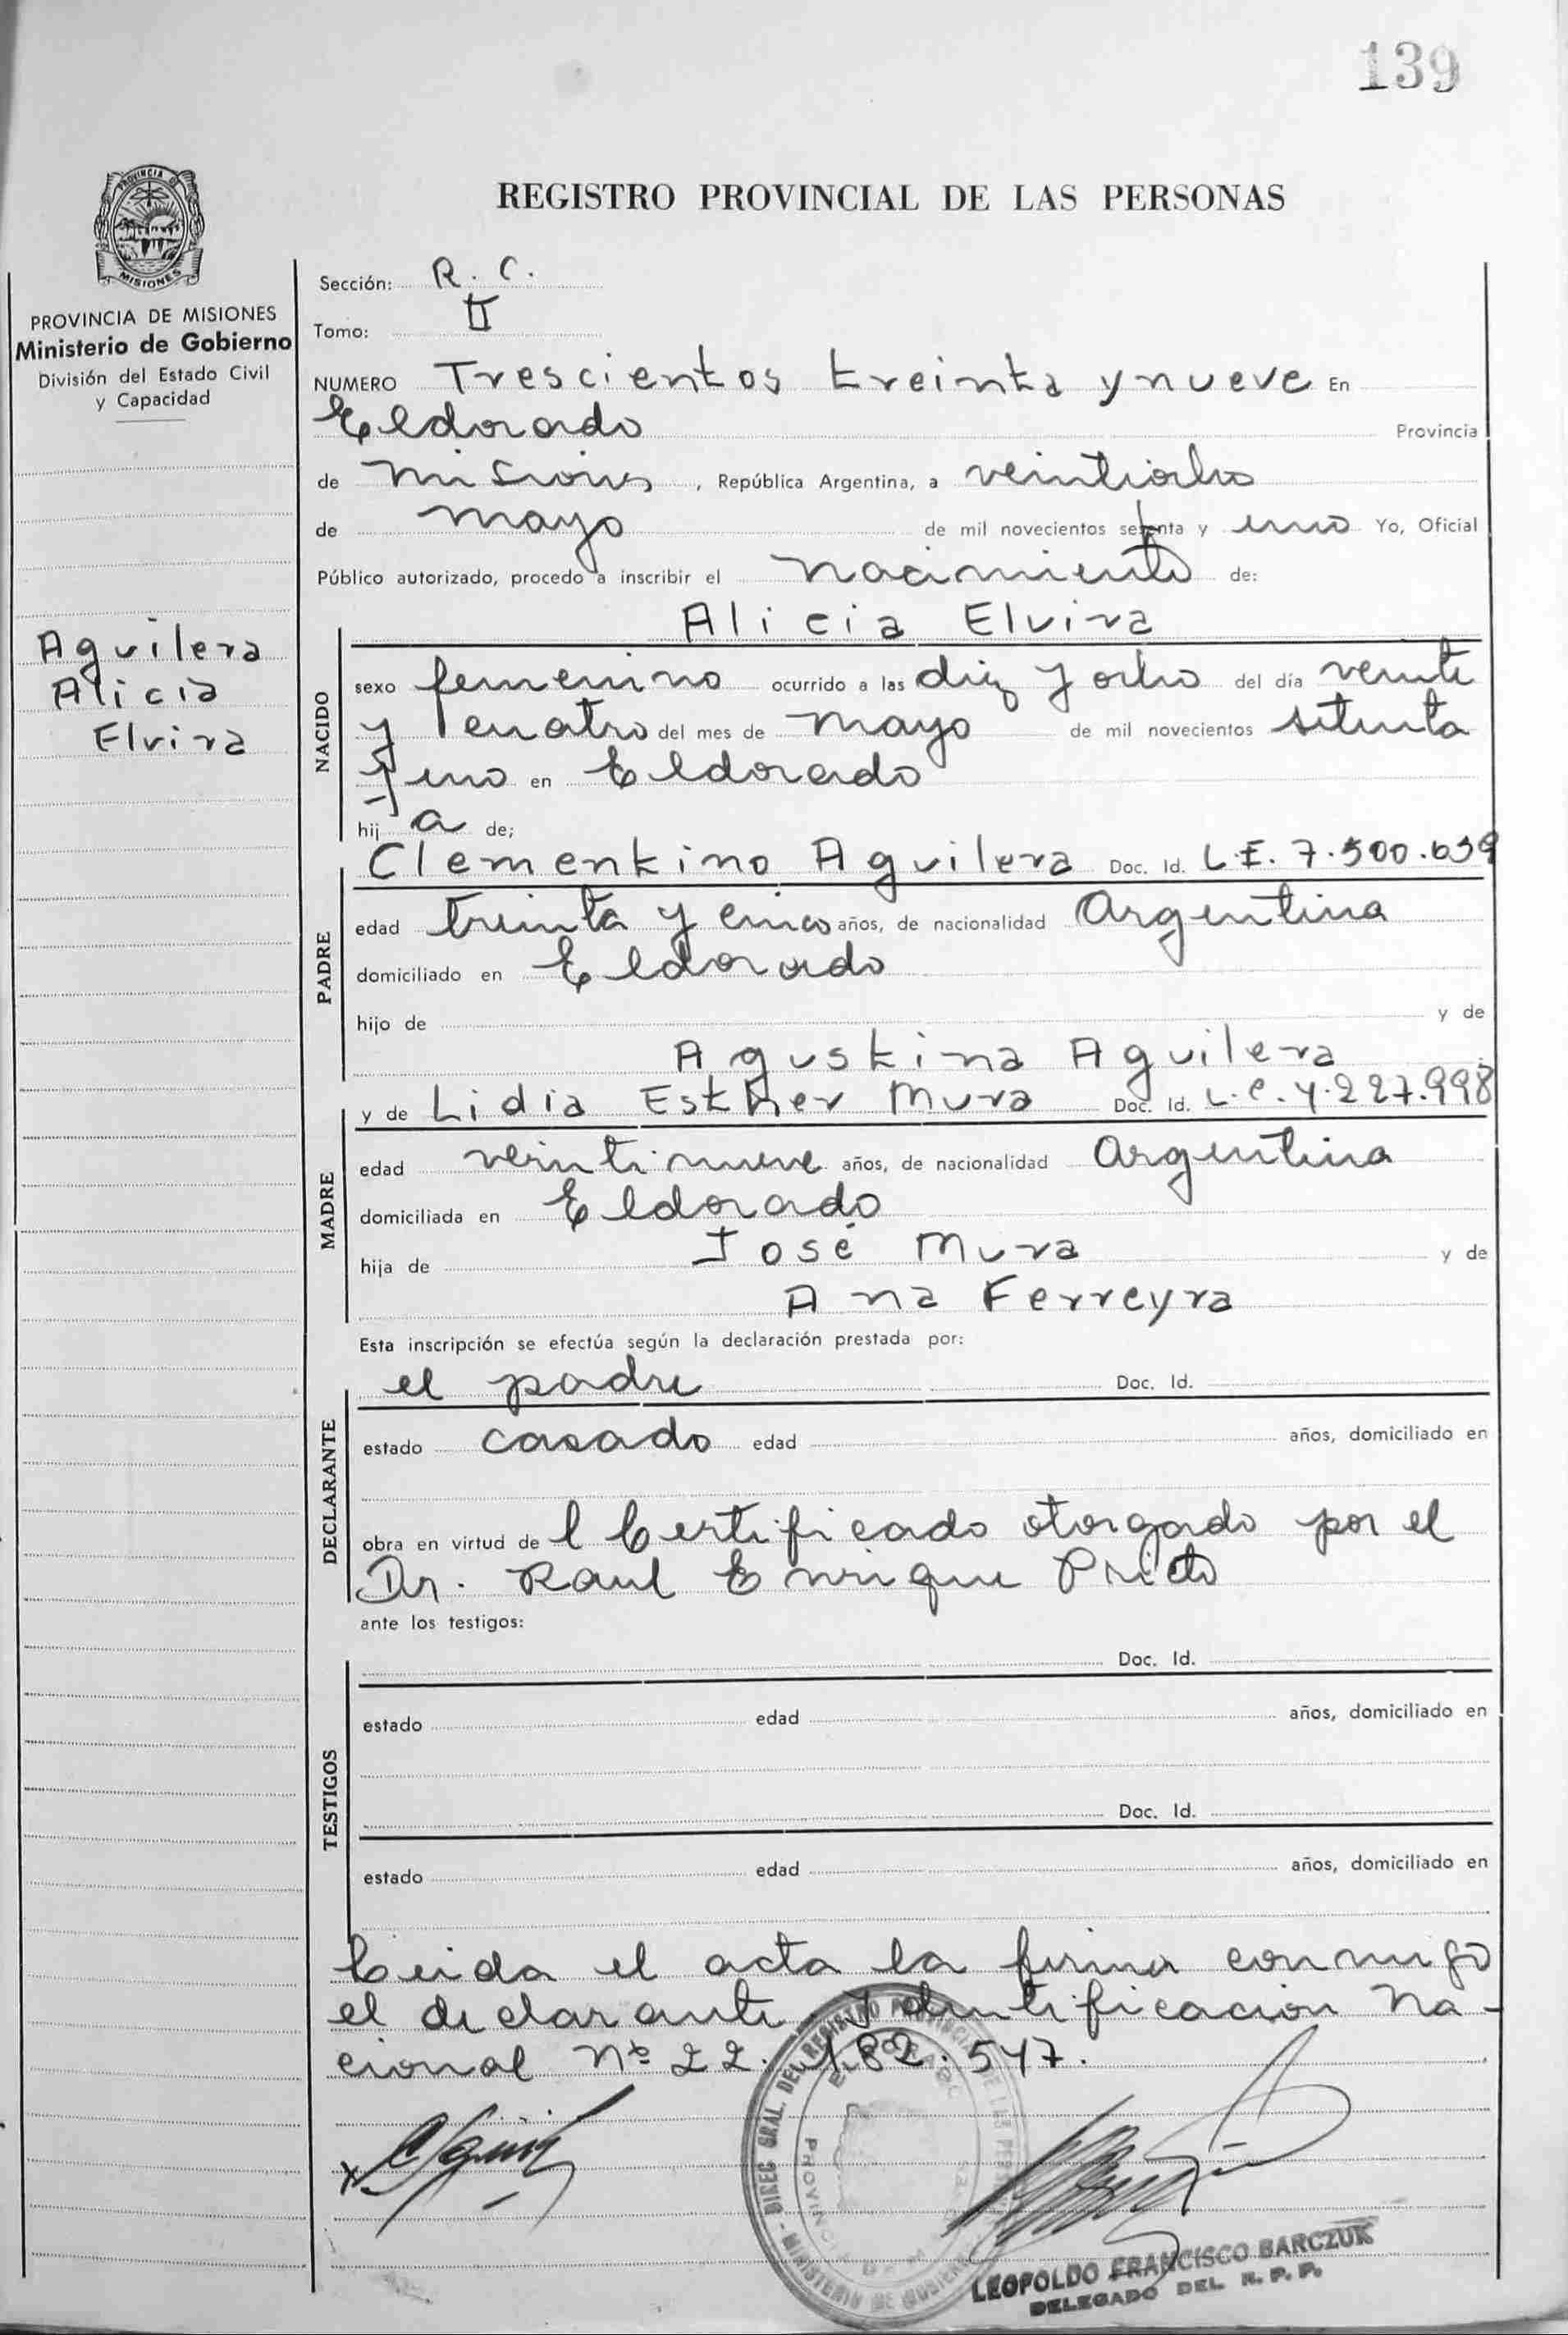 139
PROVINCIA DE
MISIONES
REGISTRO PROVINCIAL DE LAS PERSONAS
PROVINCIA DE MISIONES
Ministerio de Gobierno
División del Estado Civil
y Capacidad
Aguilera
Alicia
Elvira
Sección: R. C.
Tomo: II
NUMERO Trescientos treinta y nueve En
Eldorado Provincia
de Misiones, República Argentina, a veintiocho
de mayo de mil novecientos setenta y uno Yo, Oficial
Público autorizado, procedo a inscribir el nacimiento de:
NACIDO
Alicia Elvira
sexo femenino ocurrido a las diez y ocho del día veinte
y cuatro del mes de mayo de mil novecientos setenta
y uno en Eldorado
hij a de;
PADRE
Clementino Aguilera Doc. Id. L.E. 7.500.639
edad treinta y cinco años, de nacionalidad Argentina
domiciliado en Eldorado
hijo de y de
Agustina Aguilera
MADRE
y de Lidia Esther Mura Doc. Id. L.C. 4.227.998
edad veintinueve años, de nacionalidad Argentina
domiciliada en Eldorado
hija de José Mura y de
Ana Ferreyra
Esta inscripción se efectúa según la declaración prestada por:
DECLARANTE
el padre Doc. Id.
estado casado edad años, domiciliado en
obra en virtud de l Certificado otorgado por el
Dr. Raul Enrique Prieto
ante los testigos:
TESTIGOS
Doc. Id.
estado edad años, domiciliado en
Doc. Id.
estado edad años, domiciliado en
Leida el acta la firma conmigo
el declarante. Identificacion Na-
cional Nº 22.182.547.
LEOPOLDO FRANCISCO BARCZUK
DELEGADO DEL R. P. P.